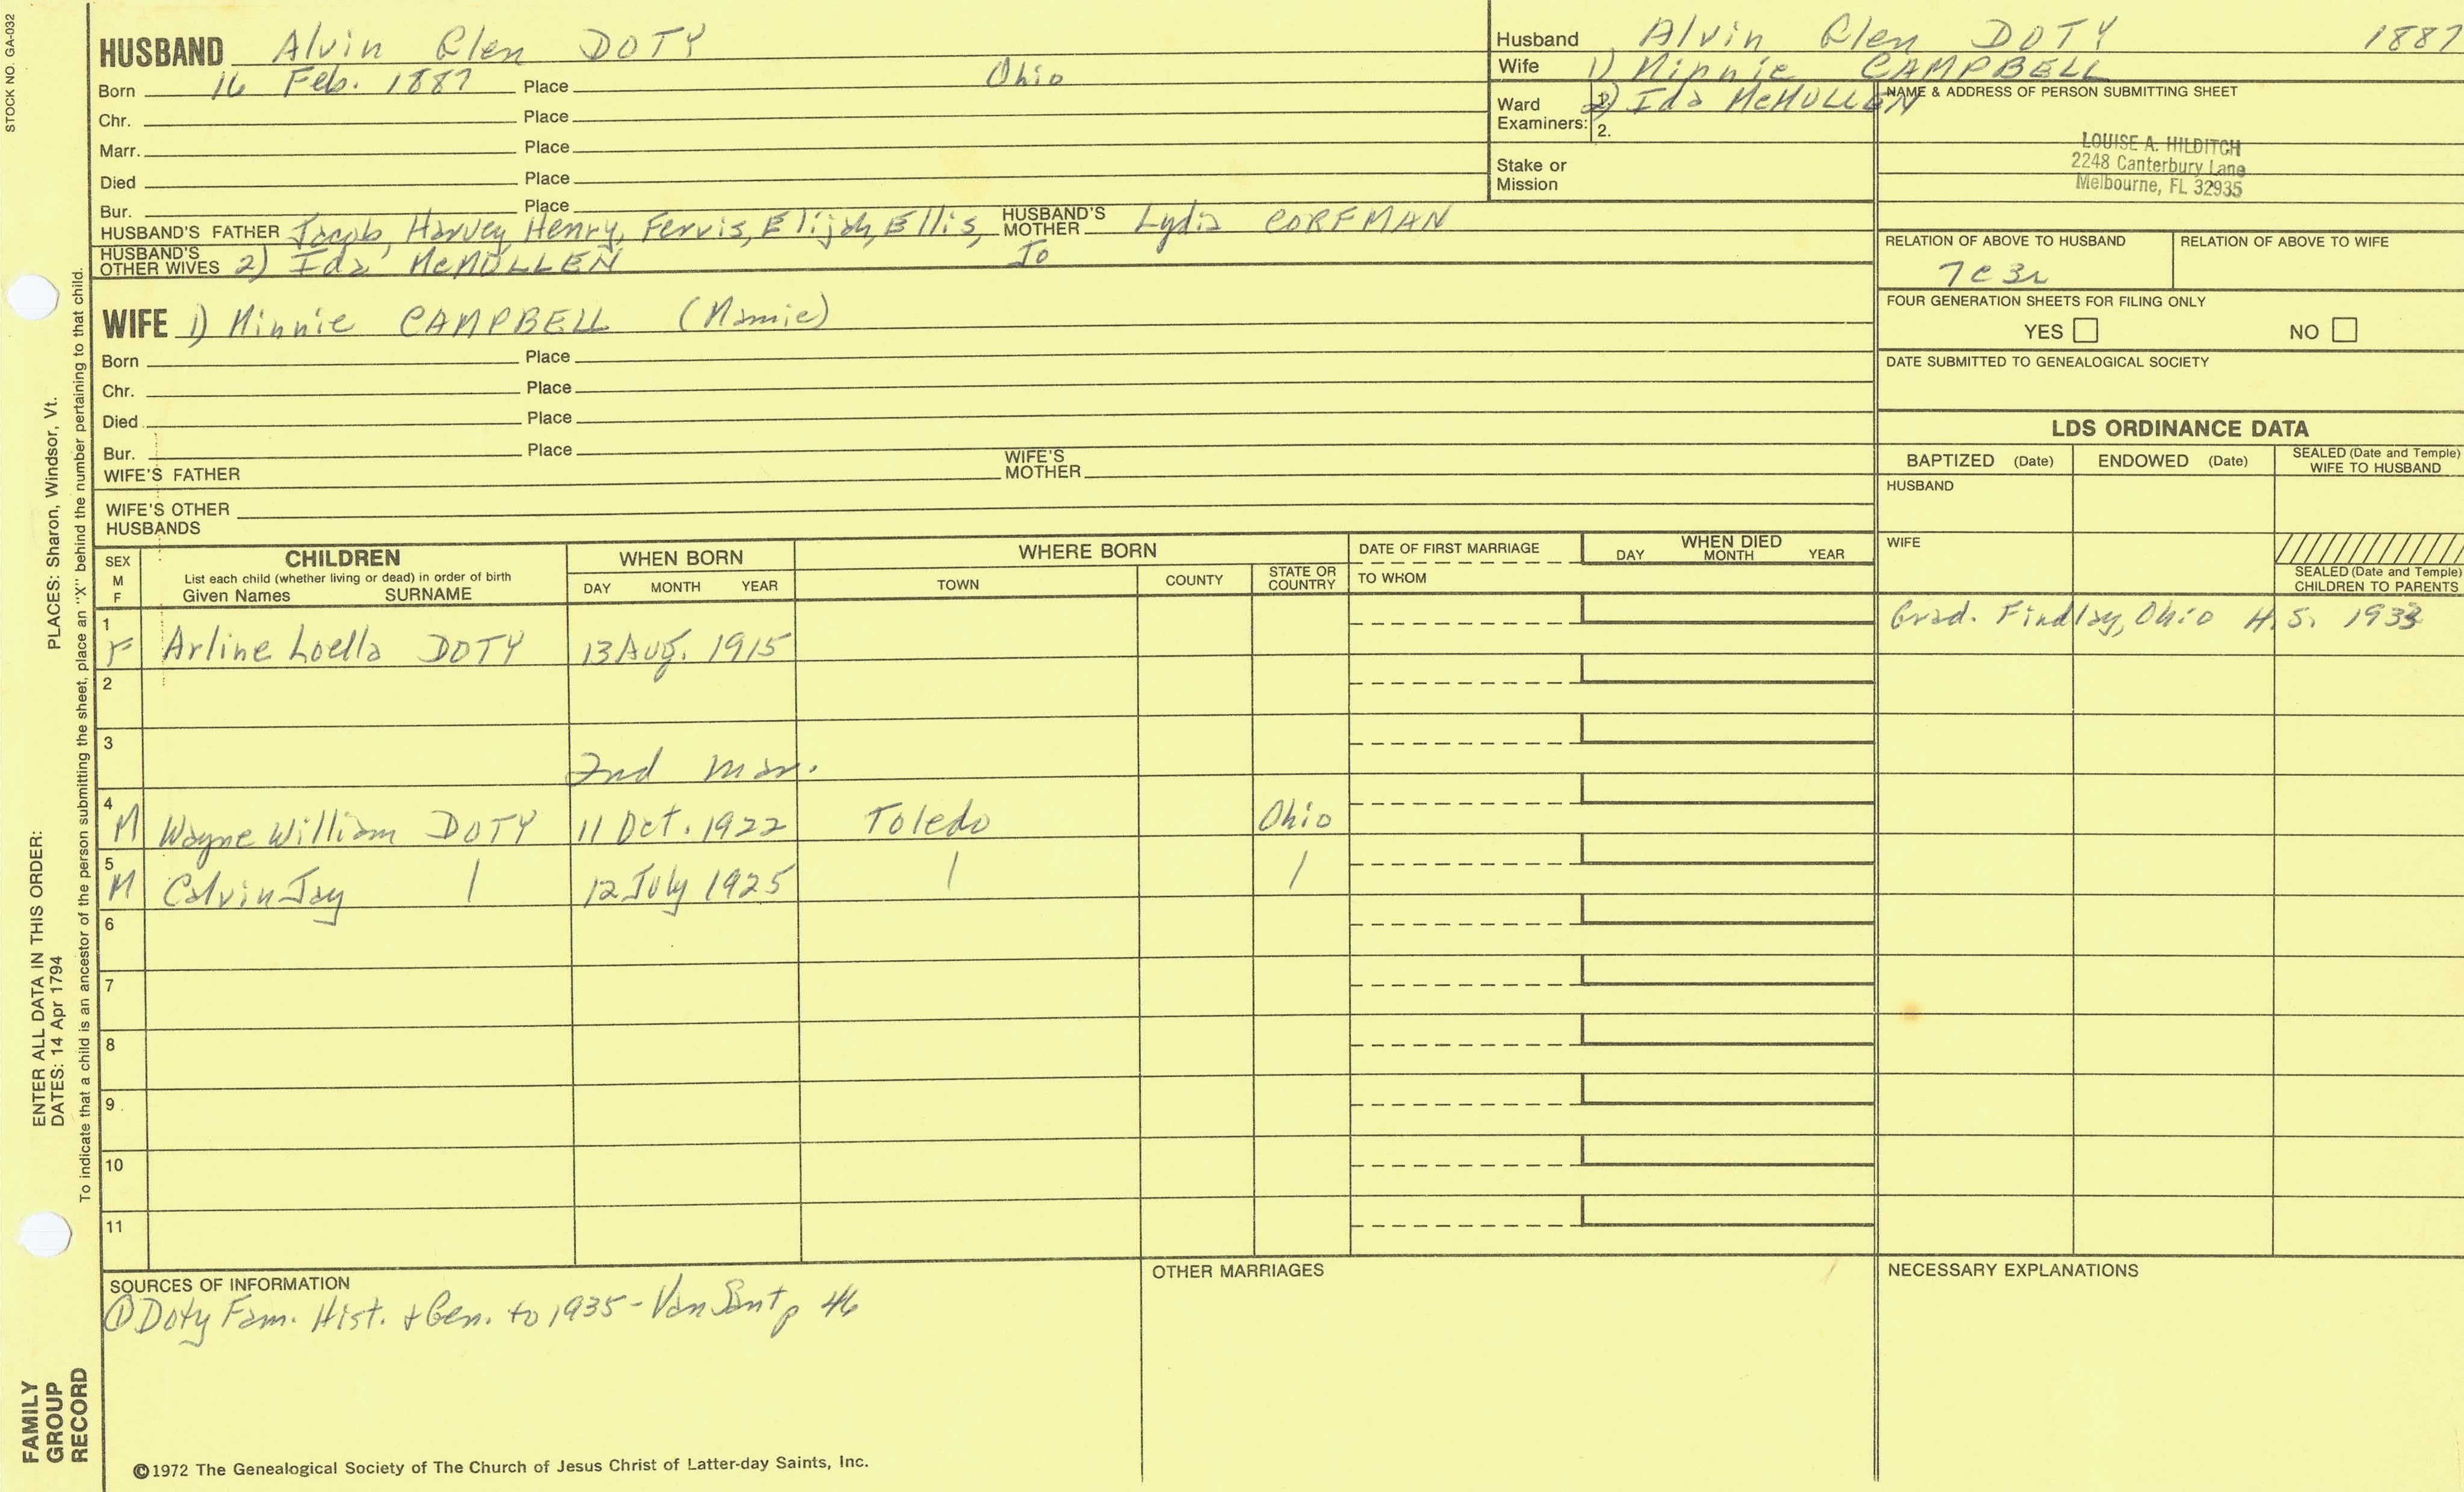 STOCK NO. GA-032
HUSBAND Alvin Glen DOTY
Born 16 Feb. 1887 Place Ohio
Chr. Place
Marr. Place
Died Place
Bur. Place
HUSBAND'S FATHER Jacob, Harvey, Henry, Fervis, Elijah, Ellis, Jo HUSBAND'S MOTHER Lydia CORFMAN
HUSBAND'S OTHER WIVES 2) Ida McMULLEN
WIFE 1) Minnie CAMPBELL (Mamie)
Born Place
Chr. Place
Died Place
Bur. Place
WIFE'S FATHER WIFE'S MOTHER
WIFE'S OTHER HUSBANDS
Husband Alvin Glen DOTY 1887
Wife 1) Minnie CAMPBELL
2) Ida McMULLEN
Ward Examiners: 1. 2.
Stake or Mission
NAME & ADDRESS OF PERSON SUBMITTING SHEET
LOUISE A. HILDITCH
2248 Canterbury Lane
Melbourne, FL 32935
RELATION OF ABOVE TO HUSBAND RELATION OF ABOVE TO WIFE
7C3r
FOUR GENERATION SHEETS FOR FILING ONLY
YES NO
DATE SUBMITTED TO GENEALOGICAL SOCIETY
LDS ORDINANCE DATA
BAPTIZED (Date) ENDOWED (Date) SEALED (Date and Temple) WIFE TO HUSBAND
HUSBAND
WIFE
SEALED (Date and Temple) CHILDREN TO PARENTS
SEX M F
CHILDREN
List each child (whether living or dead) in order of birth
Given Names SURNAME
WHEN BORN
DAY MONTH YEAR
WHERE BORN
TOWN COUNTY STATE OR COUNTRY
DATE OF FIRST MARRIAGE
TO WHOM
WHEN DIED
DAY MONTH YEAR
1 F Arline Loella DOTY 13 Aug. 1915 Grad. Findlay, Ohio H.S. 1933
2
3 2nd mar.
4 M Wayne William DOTY 11 Oct. 1922 Toledo Ohio
5 M Calvin Jay | 12 July 1925 | |
6
7
8
9
10
11
SOURCES OF INFORMATION
① Doty Fam. Hist. + Gen. to 1935 - Van Sant p 46
OTHER MARRIAGES
NECESSARY EXPLANATIONS
©1972 The Genealogical Society of The Church of Jesus Christ of Latter-day Saints, Inc.
ENTER ALL DATA IN THIS ORDER:
DATES: 14 Apr 1794
PLACES: Sharon, Windsor, Vt.
To indicate that a child is an ancestor of the person submitting the sheet, place an "X" behind the number pertaining to that child.
FAMILY
GROUP
RECORD